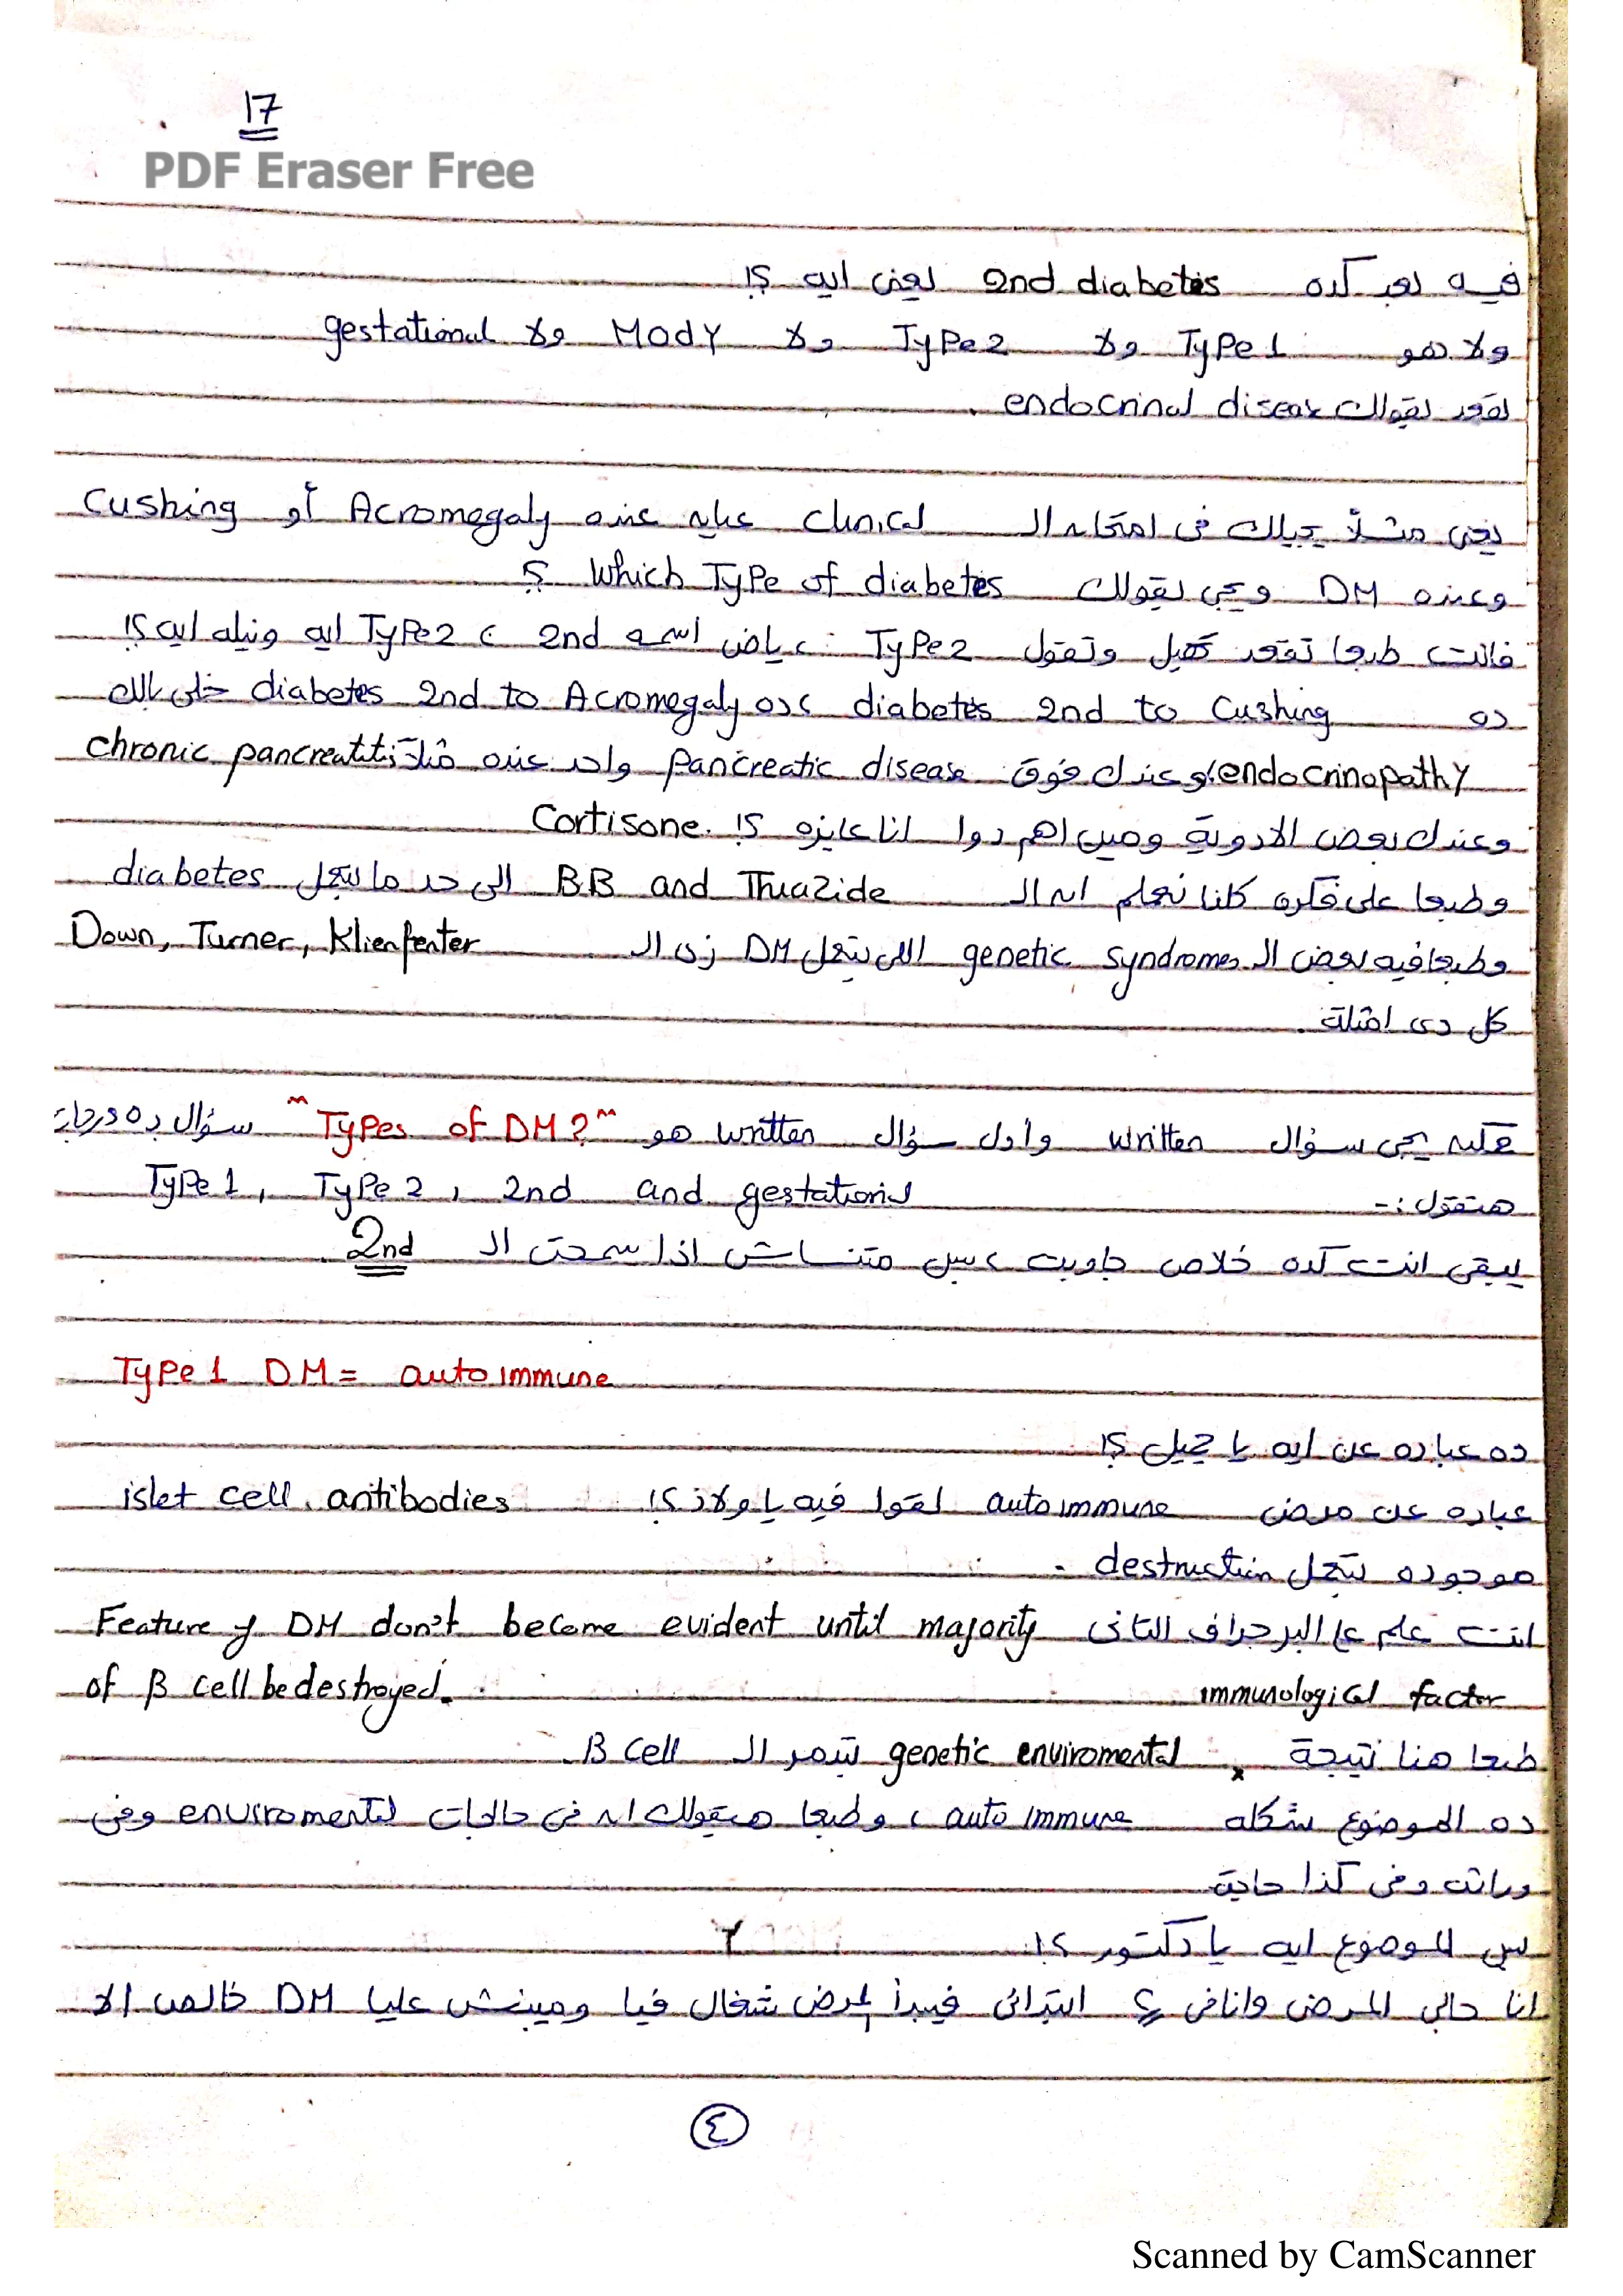 17
PDF Eraser Free
فيه بعد كده 2nd diabetes يعنى ايه ؟!
ولا هو Type 1 ولا Type 2 ولا MODY ولا gestational
يقعد يقولك endocrinal disease
يعنى مثلاً يجيلك فى امتحان ال clinical عيان عنده Acromegaly أو Cushing
وعنده DM ويجى يقولك Which Type of diabetes ؟
فانت طبعا تقعد تهبل وتقول Type 2 : ياض اسمه 2nd ، Type 2 ايه ونيله ايه ؟!
ده diabetes 2nd to Cushing ، ده diabetes 2nd to Acromegaly خلى بالك
endocrinopathy، وعندك فوق pancreatic disease واحد عنده مثلاً chronic pancreatitis
وعندك بعض الادوية ومين اهم دوا انا عايزه ؟! Cortisone.
وطبعا على فكره كلنا نعلم ان ال B.B and Thiazide الى حد ما بتعمل diabetes
وطبعا فيه بعض ال genetic syndromes اللى بتعمل DM زى ال Down, Turner, Klienfenter
كل دى امثلة.
يجى سؤال written وأول سؤال written هو "Types of DM?" سؤال ده
هتقول :- Type 1, Type 2, 2nd and gestational
يبقى انت كده خلاص جاوبت ، بس متنساش اذا سمحت ال 2nd
Type 1 DM = autoimmune
ده عباره عن ايه يا جميل ؟!
عباره عن مرض autoimmune لقوا فيه يا ولاد ؟! islet cell antibodies
موجوده بتعمل destruction .
انت علم ع البرجراف التانى Feature of DM don't become evident until majority
of β cell be destroyed. immunological factor
طبعا هنا نتيجة genetic enviromental بتدمر ال β cell.
ده الموضوع شكله auto immune ، وطبعا هيقولك ان فى حاجات enviromental وفى
وراثه وفى كذا حاجة
بس الموضوع ايه يا دكتور ؟!
انا جالى المرض وانا فى ابتدائى فيبدأ المرض شغال فيا ومبينش عليا DM خالص الا
٤
Scanned by CamScanner